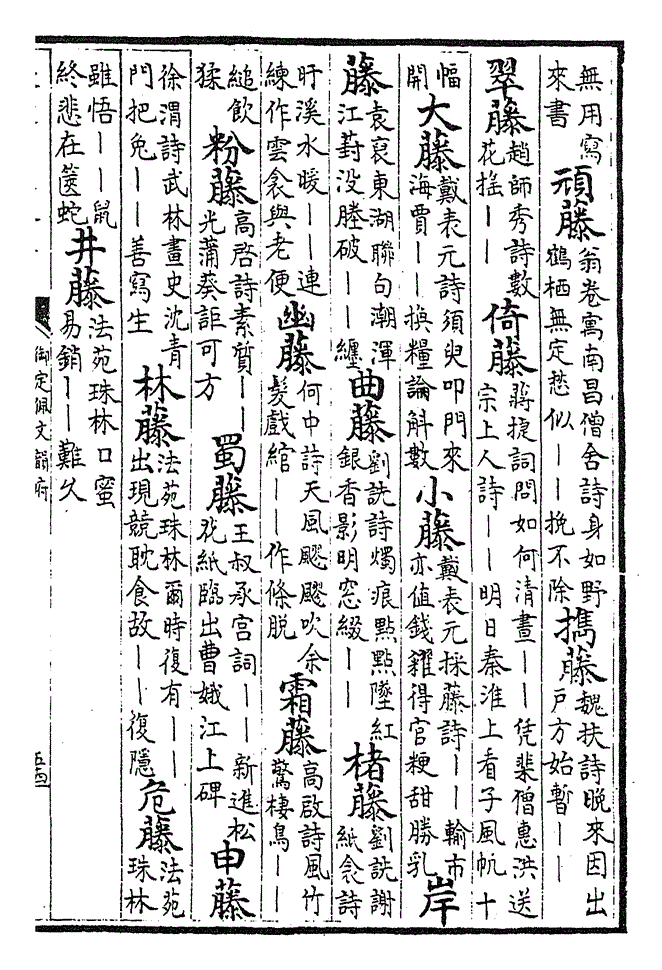 無用寫來書 頑藤 翁卷寓南昌僧舍詩身如野鶴栖無定愁似｜｜挽不除 擕藤 魏扶詩晚來因出戶方始暫｜｜
翠藤 趙師秀詩數花搖｜｜ 倚藤 蔣捷詞問如何清晝｜｜凭棐僧惠洪送宗上人詩｜｜明日秦淮上看子風帆十
幅開 大藤 戴表元詩須臾叩門來海賈｜｜換糧論斛數 小藤 戴表元採藤詩｜｜輸市亦值錢糴得官粳甜勝乳 岸
藤 袁裒東湖聯句潮渾江葑没塍破｜｜纏 曲藤 劉詵詩燭痕點點墜紅銀香影明窓綴｜｜ 楮藤 劉詵謝紙衾詩
盱溪水暖｜｜連練作雲衾與老便 幽藤 何中詩天風飂飂吹余髮戲綰｜｜作條脫 霜藤 高啟詩風竹驚棲鳥｜｜
縋飲猱 粉藤 高啓詩素質｜｜光蒲葵詎可方 蜀藤 王叔承宮詞｜｜新進松花紙臨出曹娥江上碑 申藤
徐渭詩武林畫史沈青門把兔｜｜善寫生 林藤 法苑珠林爾時復有｜｜出現競耽食故｜｜復隱 危藤 法苑珠林
雖悟｜｜鼠終悲在篋蛇 井藤 法苑珠林口蜜易銷｜｜難久
御定佩文韻府
五四